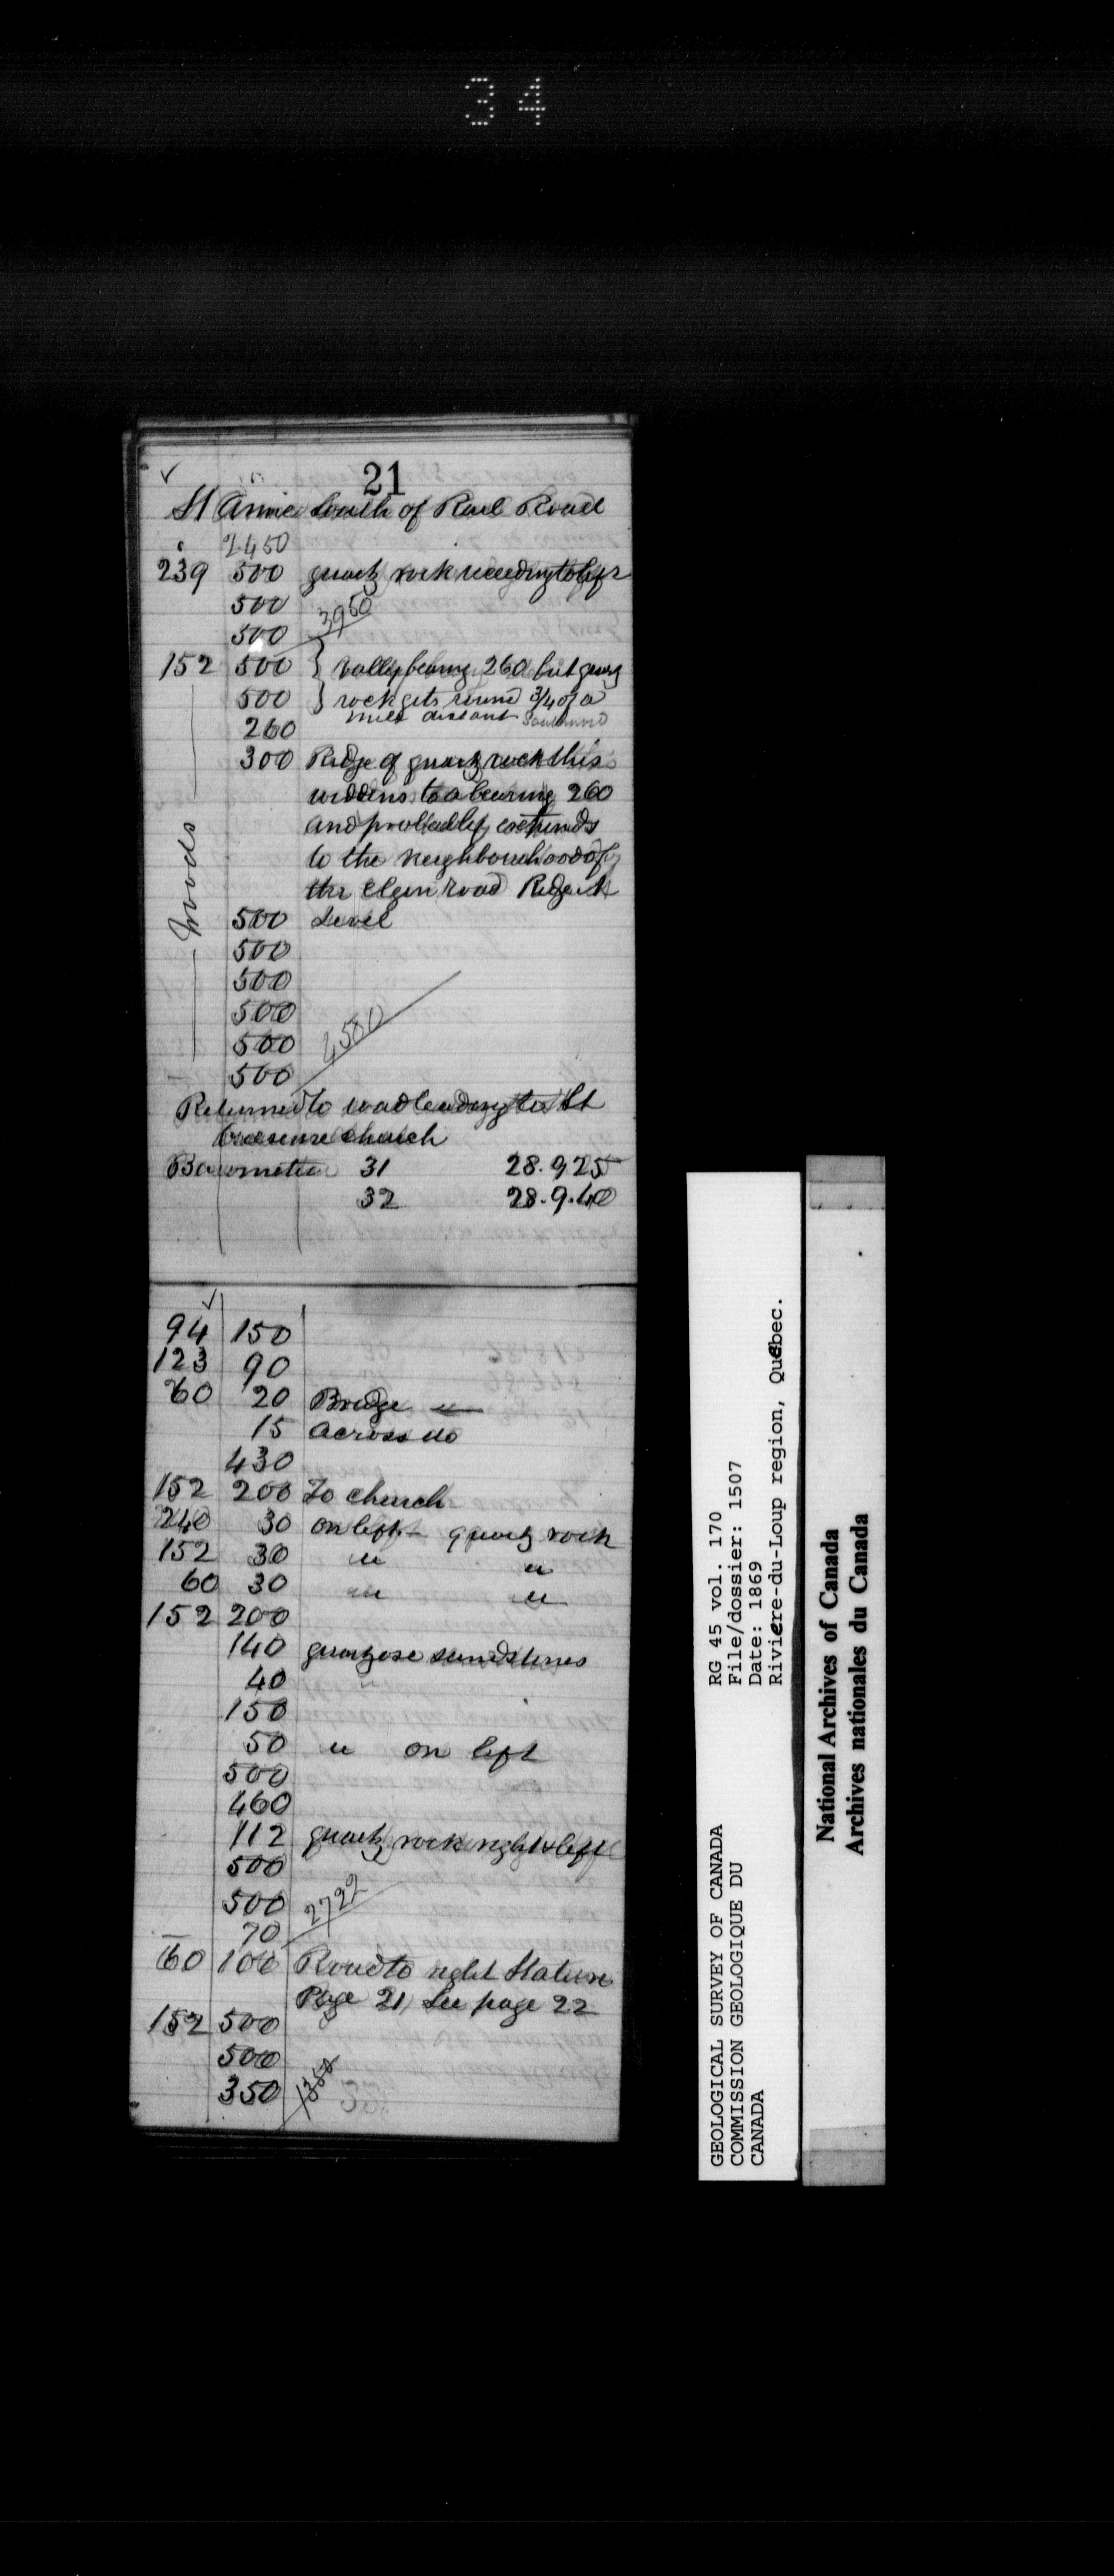 34
21
St Anne South of Rail Road
2450
239 500 quartz rock receding to left
500
500 3950
152 500 } valley bearing 260 but quartz
500 } rock gets round 3/4 of a
260 mile distant
300 Ridge of quartz rock this
widdens to a bearing 260
and probably extends
to the neighbourhood of
the Elgin road Ridge
Woods
500 Level
500
500
500
500 4580
500
Returned to road leading to St
church
Barometer 31 28.925
32 28.9.40
94 150
123 90
60 20 Bridge
15 across do
430
152 200 To church
240 30 on left quartz rock
152 30 " "
60 30 " "
152 200
140 quartzose sandstones
40
150
50 " on left
500
460
112 quartz rock right & left
500
500 2722
70
60 100 Road to right Station
Page 21 See page 22
152 500
500
350 1350
GEOLOGICAL SURVEY OF CANADA
COMMISSION GEOLOGIQUE DU
CANADA
RG 45 vol. 170
File/dossier: 1507
Date: 1869
Riviere-du-Loup region, Quebec.
National Archives of Canada
Archives nationales du Canada